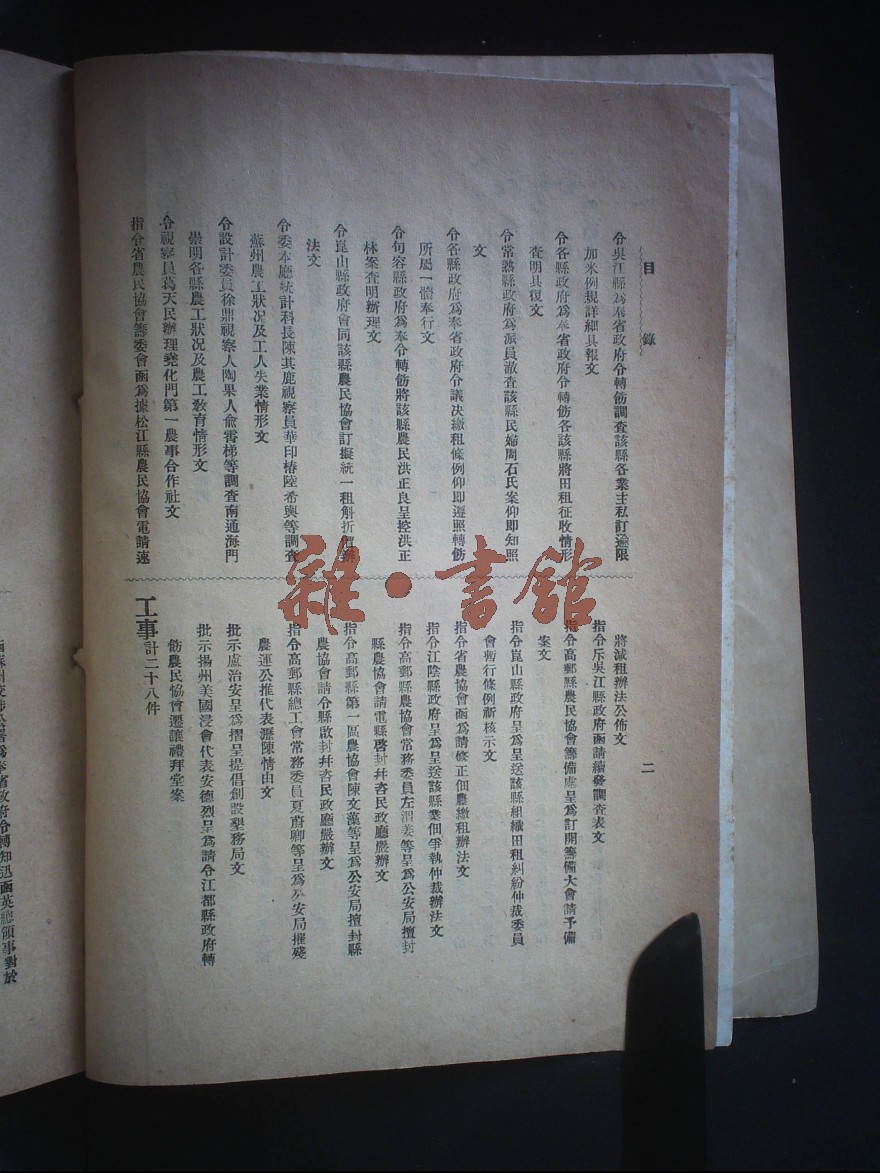 目錄
二
令吳江縣爲奉省政府令轉飭調查該縣各業主私訂逾限
加米例規詳細具報文
令各縣政府爲奉省政府令轉飭各該縣將田租征收情形
查明具復文
令常熟縣政府爲派員澈查該縣民婦周石氏案仰即知照
文
令各縣政府爲奉省政府令議决繳租條例仰即遵照轉飭
所屬一體奉行文
令句容縣政府爲奉令轉飭將該縣農民洪正良呈控洪正
林案查明辦理文
令崑山縣政府會同該縣農民協會訂擬統一租斛折價辦
法文
令委本廳統計科長陳其鹿視察員華印椿陸希輿等調查
蘇州農工狀况及工人失業情形文
令設計委員徐鼎視察人陶果人俞霄梯等調查南通海門
崇明各縣農工狀况及農工教育情形文
令視察員葛天民辦理堯化門第一農事合作社文
指令省農民協會籌委會函爲據松江縣農民協會電請速
將減租辦法公佈文
指令斥吳江縣政府函請續發調查表文
指令高郵縣農民協會籌備處呈爲訂開籌備大會請予備
案文
指令崑山縣政府呈爲呈送該縣組織田租糾紛仲裁委員
會暫行條例祈核示文
指令省農協會函爲請修正佃農繳租辦法文
指令江陰縣政府呈爲呈送該縣業佃爭執仲裁辦法文
指令高郵縣農協會常務委員左渭姜等呈爲公安局擅封
縣農協會請電縣啓封幷咨民政廳嚴辦文
指令高郵縣第一區農協會陳文藻等呈爲公安局擅封縣
農協會請令縣啟封幷咨民政廳嚴辦文
指令高郵縣總工會常務委員夏蔚聊等呈爲公安局摧殘
農運公推代表瀝陳情由文
批示盧治安呈爲摺呈提倡創設墾務局文
批示揚州美國浸會代表安德烈呈爲請令江都縣政府轉
飭農民協會遷讓禮拜堂案
工事計二十八件
爲奉省政府令轉知迅函英總領事對於
雜·書館